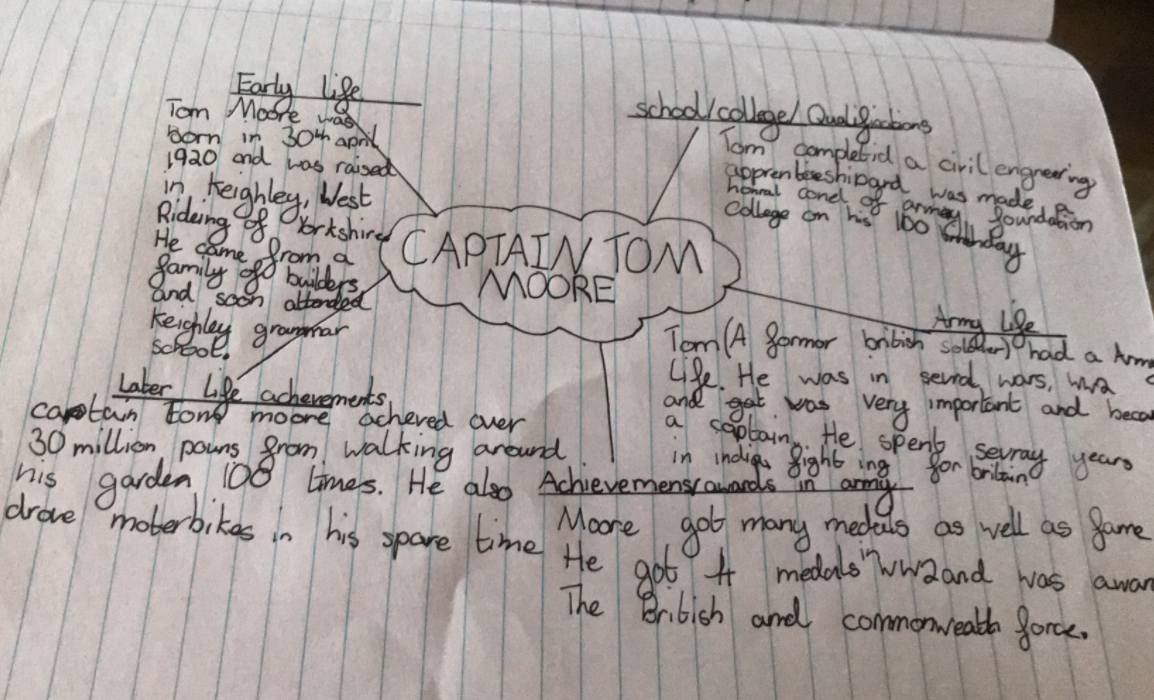 Early Life
Tom Moore was
born in 30th april
1920 and was raised
in Keighley, West
Rideing of Yorkshire
He came from a
family of builders
and soon attended
Keighley grammar
school.
school/college/Qualifications
Tom completid a civil engneering
was made a
of army foundation
College on his 100 birthday
CAPTAIN TOM
MOORE
Army Life
Tom (A formor british soldier) had a Army
Life. He was in sevral wars, ww2
and got was very important and
a captain. He spent sevray years
in india fighting for britain
Later Life achevements
captain tom moore acheved over
30 million pouns from walking around
his garden 100 times. He also
drove moterbikes in his spare time
Achievemens/awards in army
Moore got many medals as well as fame
He got 4 medals in ww2 and was
The British and commonwealth force.